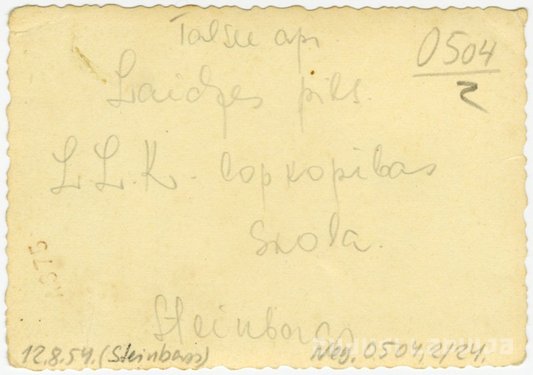 Talsu apr.
0504
2
Laidzes pils.
L.L.K. lopkopības
skola.
Steinbergs
12.8.54. (Steinbergs) Neg. 0504, 2/24.